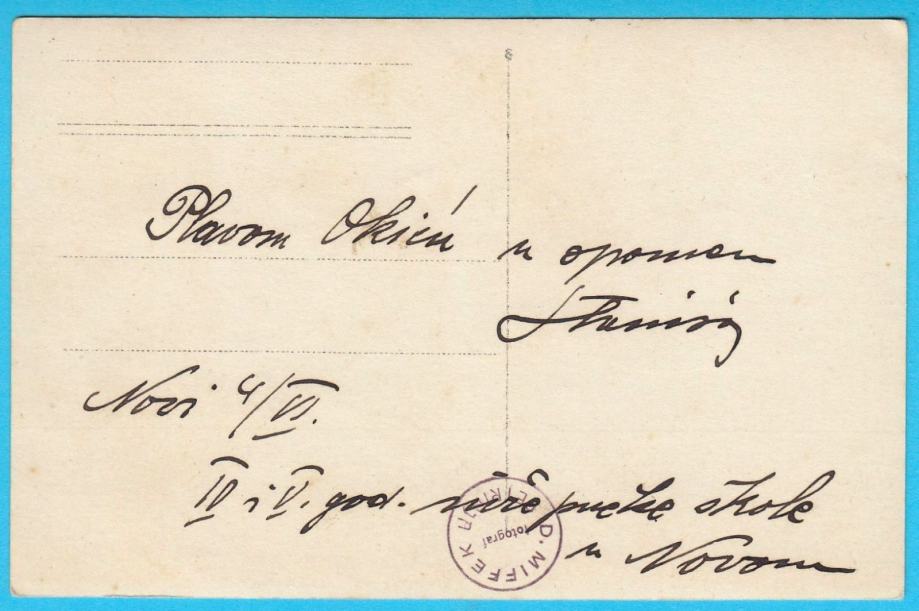 Plavom Okiću u opomen
Stanišić
Novi 4/VI.
IV i V. god. niže pučke škole
u Novom
D. MIFFEK
fotograf